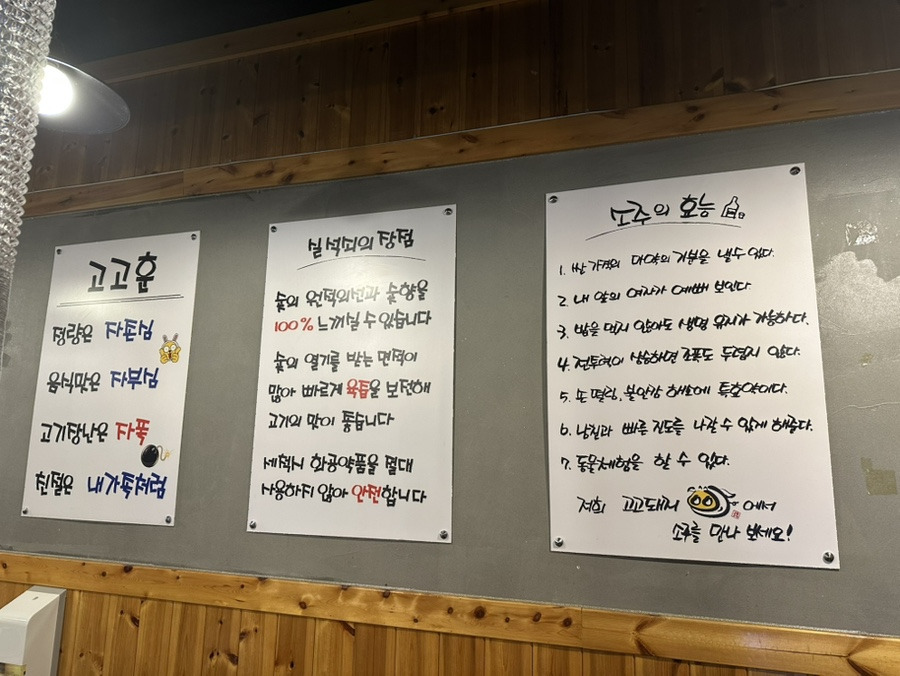 고고훈
정량은 자존심
음식맛은 자부심
고기탄난은 자폭
친절은 내가족처럼
실석쇠의 장점
숯의 원적외선과 숯향을
100% 느끼실 수 있습니다
숯의 열기를 받는 면적이
많아 빠르게 육즙을 보전해
고기의 맛이 좋습니다
세척시 화공약품을 절대
사용하지 않아 안전합니다
소주의 효능
1. 싼 가격의 마약의 기분을 낼수 있다.
2. 내 앞의 여자가 예뻐 보인다
3. 밥을 먹지 않아도 생명 유지가 가능하다.
4. 전투력이 상승하면 조폭도 두렵지 않다.
5. 손 떨림, 불안감 해소에 특효약이다.
6. 남친과 빠른 진도를 나갈 수 있게 해준다.
7. 동물체험을 할 수 있다.
저희 고고돼지 에서
소주를 만나 보세요!